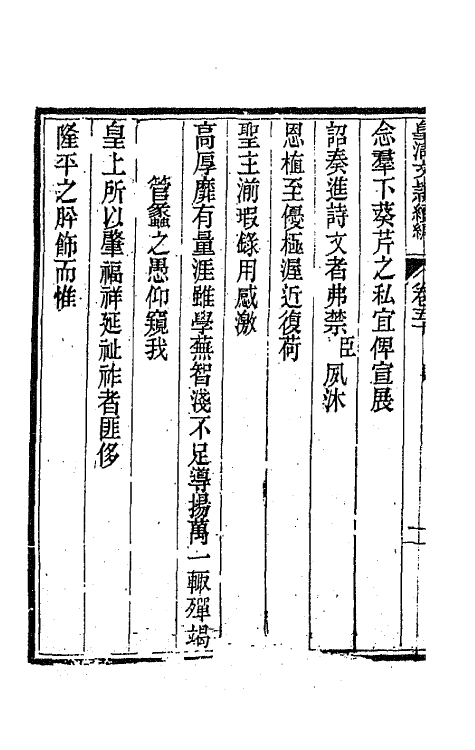 皇清文穎續編 卷五十
念羣下葵芹之私宜俾宣展
詔奏進詩文者弗禁臣夙沐
恩植至優極渥近復荷
聖主湔瑕錄用感激
高厚靡有量涯雖學蕪智淺不足導揚萬一輙殫竭
管蠡之愚仰窺我
皇上所以肇福祥延祉祚者匪侈
隆平之睟飾而惟